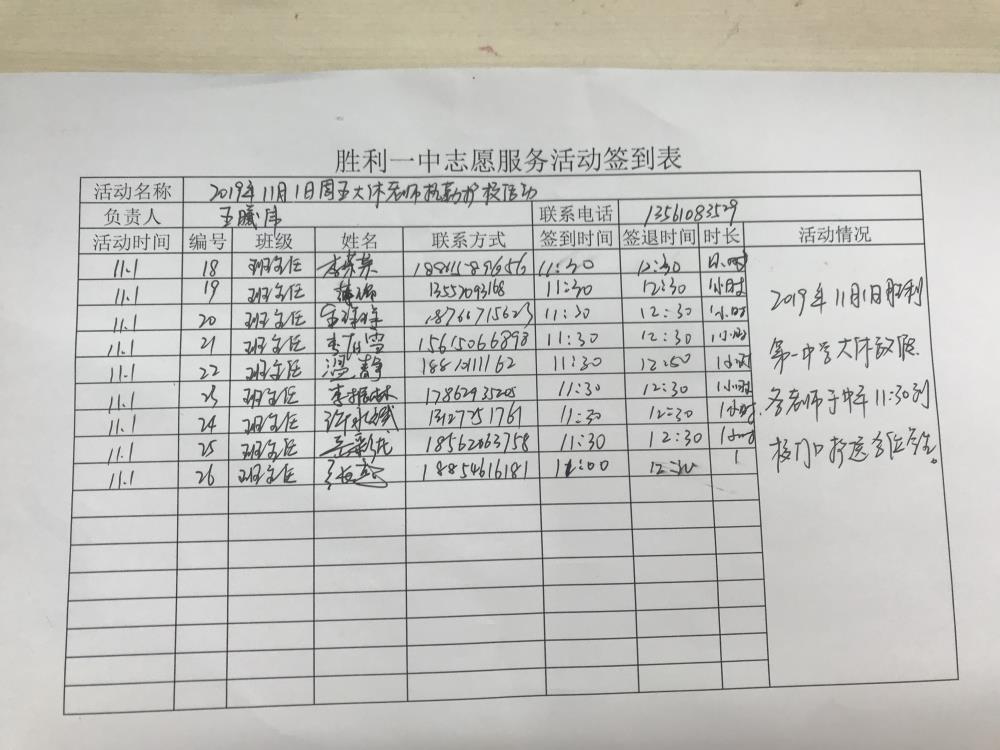 胜利一中志愿服务活动签到表
活动名称 2019年11月1日周五大休老师执勤护校活动
负责人 王曦伟 联系电话 13561083529
活动时间 编号 班级 姓名 联系方式 签到时间 签退时间 时长 活动情况
11.1 18 班主任 11:30 12:30 1小时
11.1 19 班主任 13552093168 11:30 12:30 1小时
11.1 20 班主任 18766715623 11:30 12:30 1小时
11.1 21 班主任 15615066898 11:30 12:30 1小时
11.1 22 班主任 温静 11:30 1小时
11.1 23 班主任 李振林 17862935205 11:30 12:30 1小时
11.1 24 班主任 许永斌 11:30 12:30 1小时
11.1 25 班主任 18562063758 11:30 12:30
11.1 26 班主任 18854616181 12:30 1
2019年11月1日胜利
第一中学大休放假
各老师于中午11:30到
校门口护送各位学生。